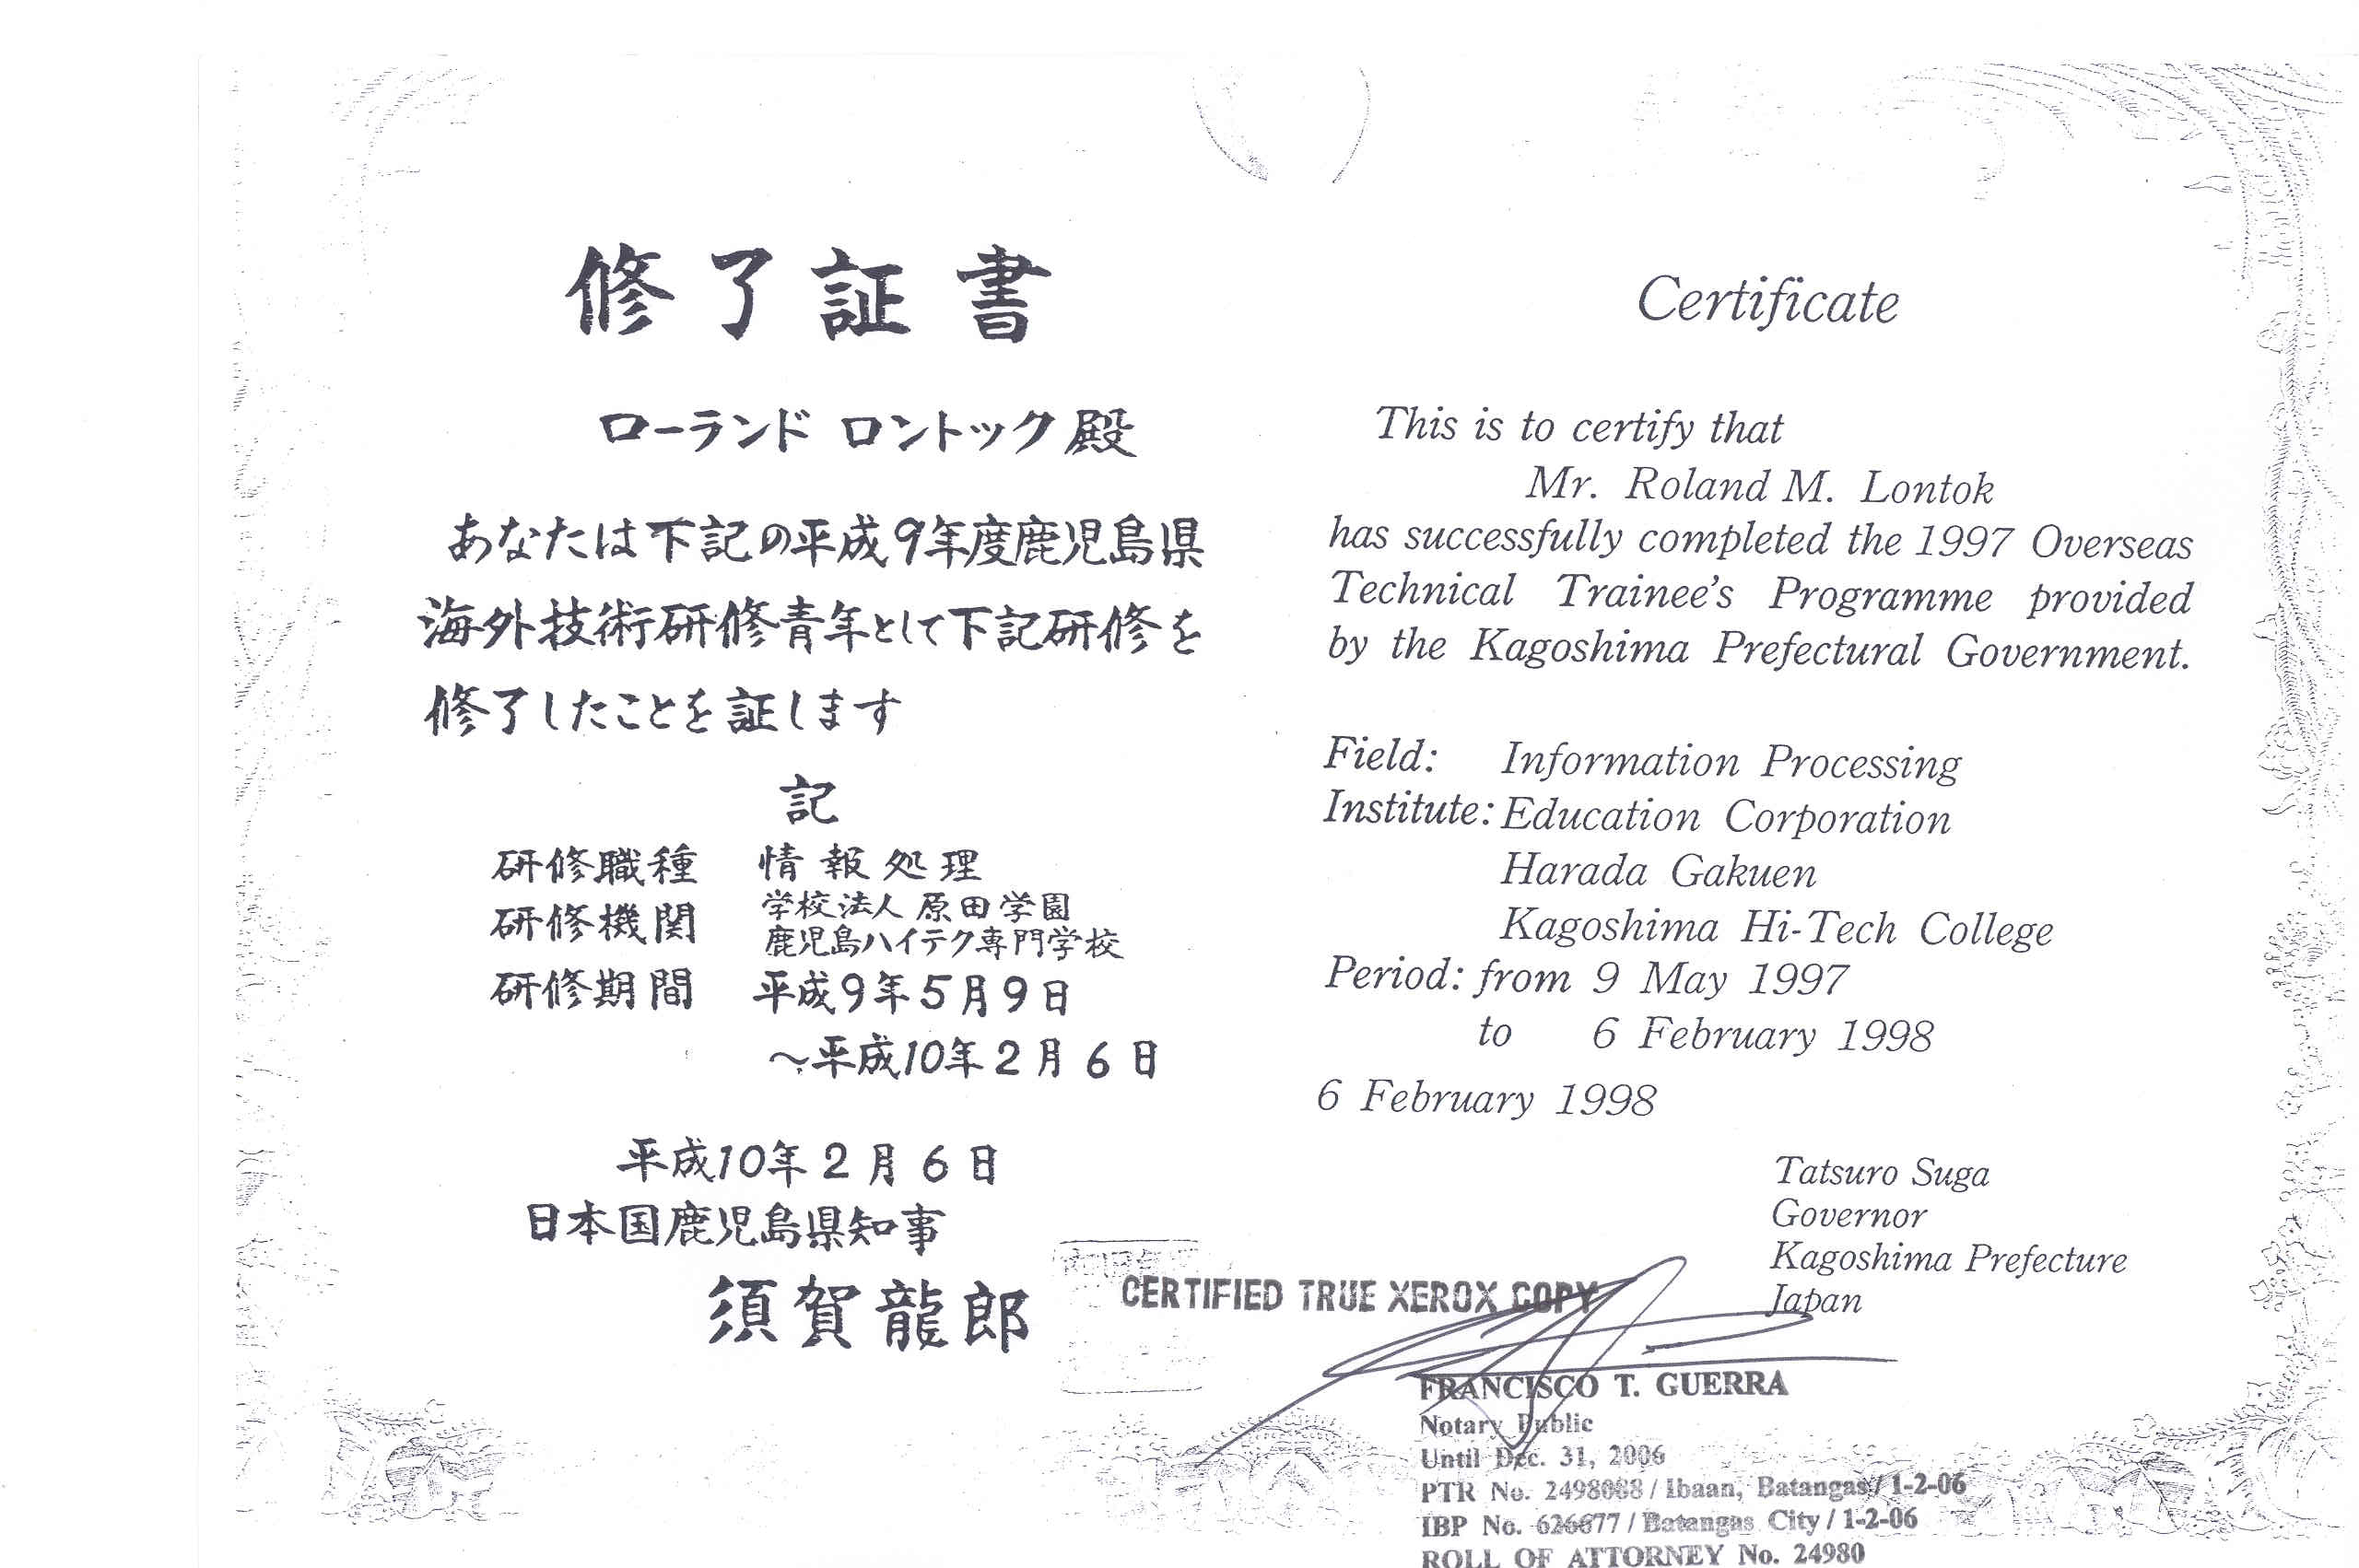 修了証書
ローランド ロントック 殿
あなたは下記の平成9年度鹿児島県
海外技術研修青年として下記研修を
修了したことを証します
記
研修職種 情報処理
研修機関 学校法人 原田学園
鹿児島ハイテク専門学校
研修期間 平成9年5月9日
～平成10年2月6日
平成10年2月6日
日本国鹿児島県知事
須賀龍郎
Certificate
This is to certify that
Mr. Roland M. Lontok
has successfully completed the 1997 Overseas
Technical Trainee's Programme provided
by the Kagoshima Prefectural Government.
Field: Information Processing
Institute: Education Corporation
Harada Gakuen
Kagoshima Hi-Tech College
Period: from 9 May 1997
to 6 February 1998
6 February 1998
Tatsuro Suga
Governor
Kagoshima Prefecture
Japan
CERTIFIED TRUE XEROX COPY
FRANCISCO T. GUERRA
Notary Public
Until Dec. 31, 2006
PTR No. 2498088 / Ibaan, Batangas / 1-2-06
IBP No. 626677 / Batangas City / 1-2-06
ROLL OF ATTORNEY No. 24980